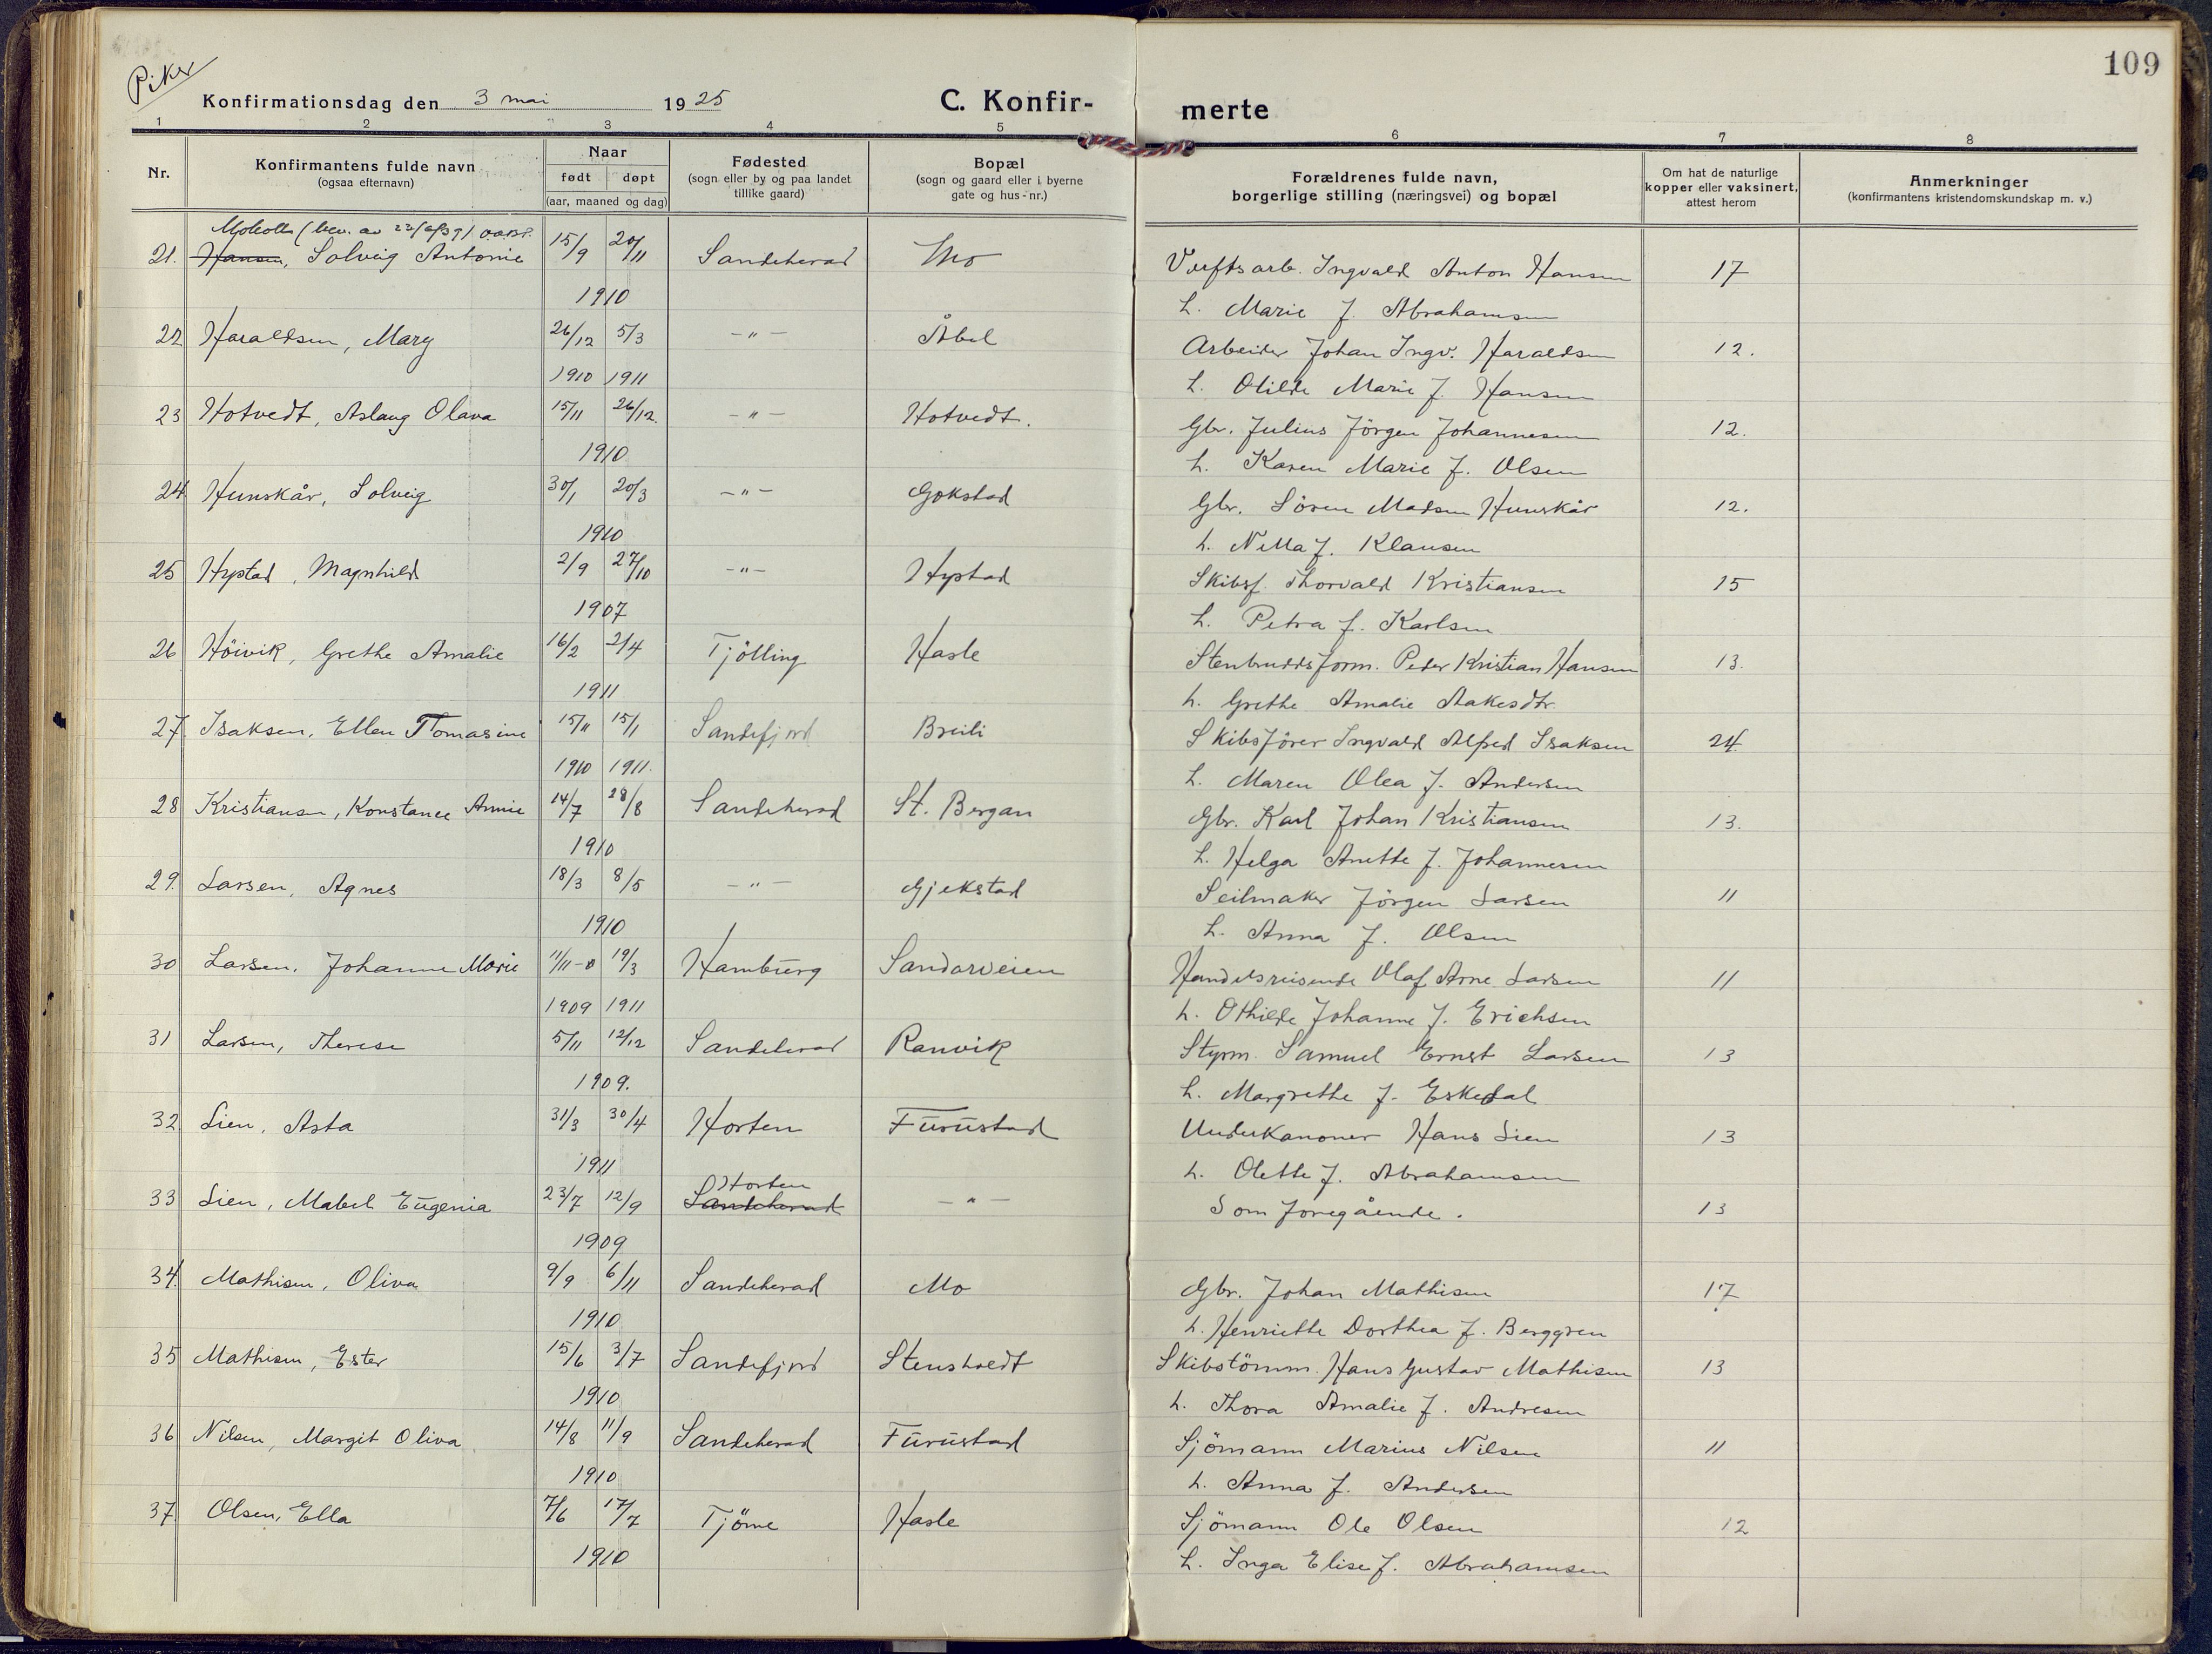 Piker
109
Konfirmationsdag den 3 mai 1925 C. Konfir-merte
1 2 3 4 5 6 7 8
Nr. Konfirmantens fulde navn (ogsaa efternavn) Naar født døpt (aar, maaned og dag) Fødested (sogn eller by og paa landet tillike gaard) Bopæl (sogn og gaard eller i byerne gate og hus-nr.) Forældrenes fulde navn, borgerlige stilling (næringsvei) og bopæl Om hat de naturlige kopper eller vaksinert, attest herom Anmerkninger (konfirmantens kristendomskundskap m. v.)
Moholt (bev. av
21. Hansen, Solveig Antonie 15/9 20/11 Sandeherad Mo Verftsarb. Ingvald Anton Hansen 17
1910 h. Marie f. Abrahamsen
22 Haraldsen, Mary 26/12 5/3 -"- Åbol Arbeider Johan Ingv. Haraldsen 12.
1910 1911 h. Otilde Marie f. Hansen
23 Hotvedt, Aslaug Olava 15/11 26/12. -"- Hotvedt. Gbr. Julius Jörgen Johannesen 12.
1910 h. Karen Marie f. Olsen
24 Hunskår, Solveig 30/1 20/3 -"- Gokstad Gbr. Sören Madsen Hunskår 12.
1910 h. Nilla f. Klausen
25 Hystad, Magnhild 2/9 27/10 -"- Hystad Skibsf. Thorvald Kristiansen 15
1907 h. Petra f. Karlsen
26 Höivik, Grethe Amalie 16/2 2/4 Tjölling Hasle Stenbruddsform. Peder Kristian Hansen 13.
1911 h. Grethe Amalie Aakesdtr.
27. Isaksen, Ellen Tomasine 15/11 15/1 Sandefjord Breili Skibsförer Ingvald Alfred Isaksen 24.
1910 1911. h. Maren Olea f. Andersen
28 Kristiansen, Konstance Annie 14/7 28/8 Sandeherad St. Bergan Gbr. Karl Johan Kristiansen 13.
1910 h. Helga Anette f. Johannesen
29. Larsen, Agnes 18/3 8/5 -"- Gjekstad Seilmaker Jörgen Larsen 11
1910 h. Anna f. Olsen
30 Larsen, Johanne Marie 11/11-0 19/3 Hamburg Sandarveien Handelsreisende Olaf Arne Larsen 11
1909 1911 h. Othilde Johanne f. Erichsen
31 Larsen, Therese 5/11 12/12 Sandeherad Ranvik Styrm. Samuel Ernst Larsen 13
1909. h. Margrethe f. Eskedal
32 Lien, Asta 31/3 30/4 Horten Furustad Underkanoner Hans Lien 13
1911 h. Olette f. Abrahamsen
Horten
33 Lien, Mabel Eugenia 23/7 12/9 Sandeherad -"- Som foregående. 13
1909
34. Mathisen, Oliva 9/9 6/11 Sandeherad Mo Gbr. Johan Mathisen 17
1910 h. Henriette Dorthea f. Berggren
35 Mathisen, Ester 15/6 3/7 Sandefjord Stensholdt Skibstömm. Hans Gustav Mathisen 13
1910 h. Thora Amalie f. Andresen
36 Nilsen, Margit Oliva 14/8 11/9 Sandeherad Furustad Sjömann Marius Nilsen 11
1910 h. Anna f. Andersen
37. Olsen, Ella 7/6 17/7 Tjöme Hasle Sjömann Ole Olsen 12
1910 h. Inga Elise f. Abrahamsen